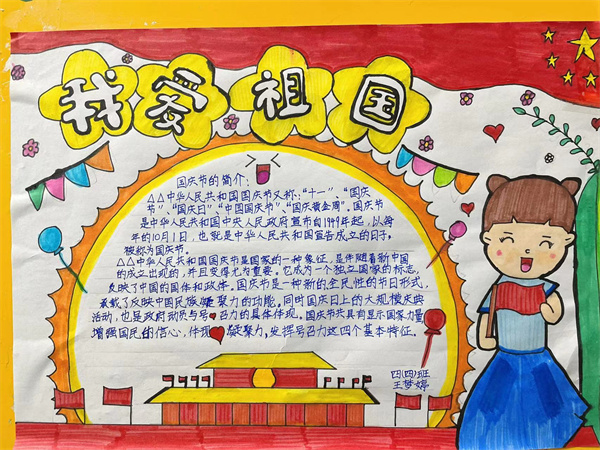 我爱祖国
国庆节的简介:
△△中华人民共和国国庆节又称:“十一”、“国庆
节”、“国庆日”、“中国国庆节”、“国庆黄金周”。国庆节
是中华人民共和国中央人民政府宣布自1949年起,以每
年的10月1日,也就是中华人民共和国宣告成立的日子,
被称为国庆节。
△△中华人民共和国国庆节是国家的一种象征,是伴随着新中国
的成立出现的,并且变得尤为重要。它成为一个独立国家的标志,
反映了中国的国体和政体。国庆节是一种新的全民性的节日形式,
承载了反映中国民族凝聚力的功能。同时国庆日上的大规模庆典
活动,也是政府动员与号召力的具体体现。国庆节共具有显示国家力量
增强国民的信心,体现凝聚力,发挥号召力这四个基本特征。
四(四)班
王梦婷